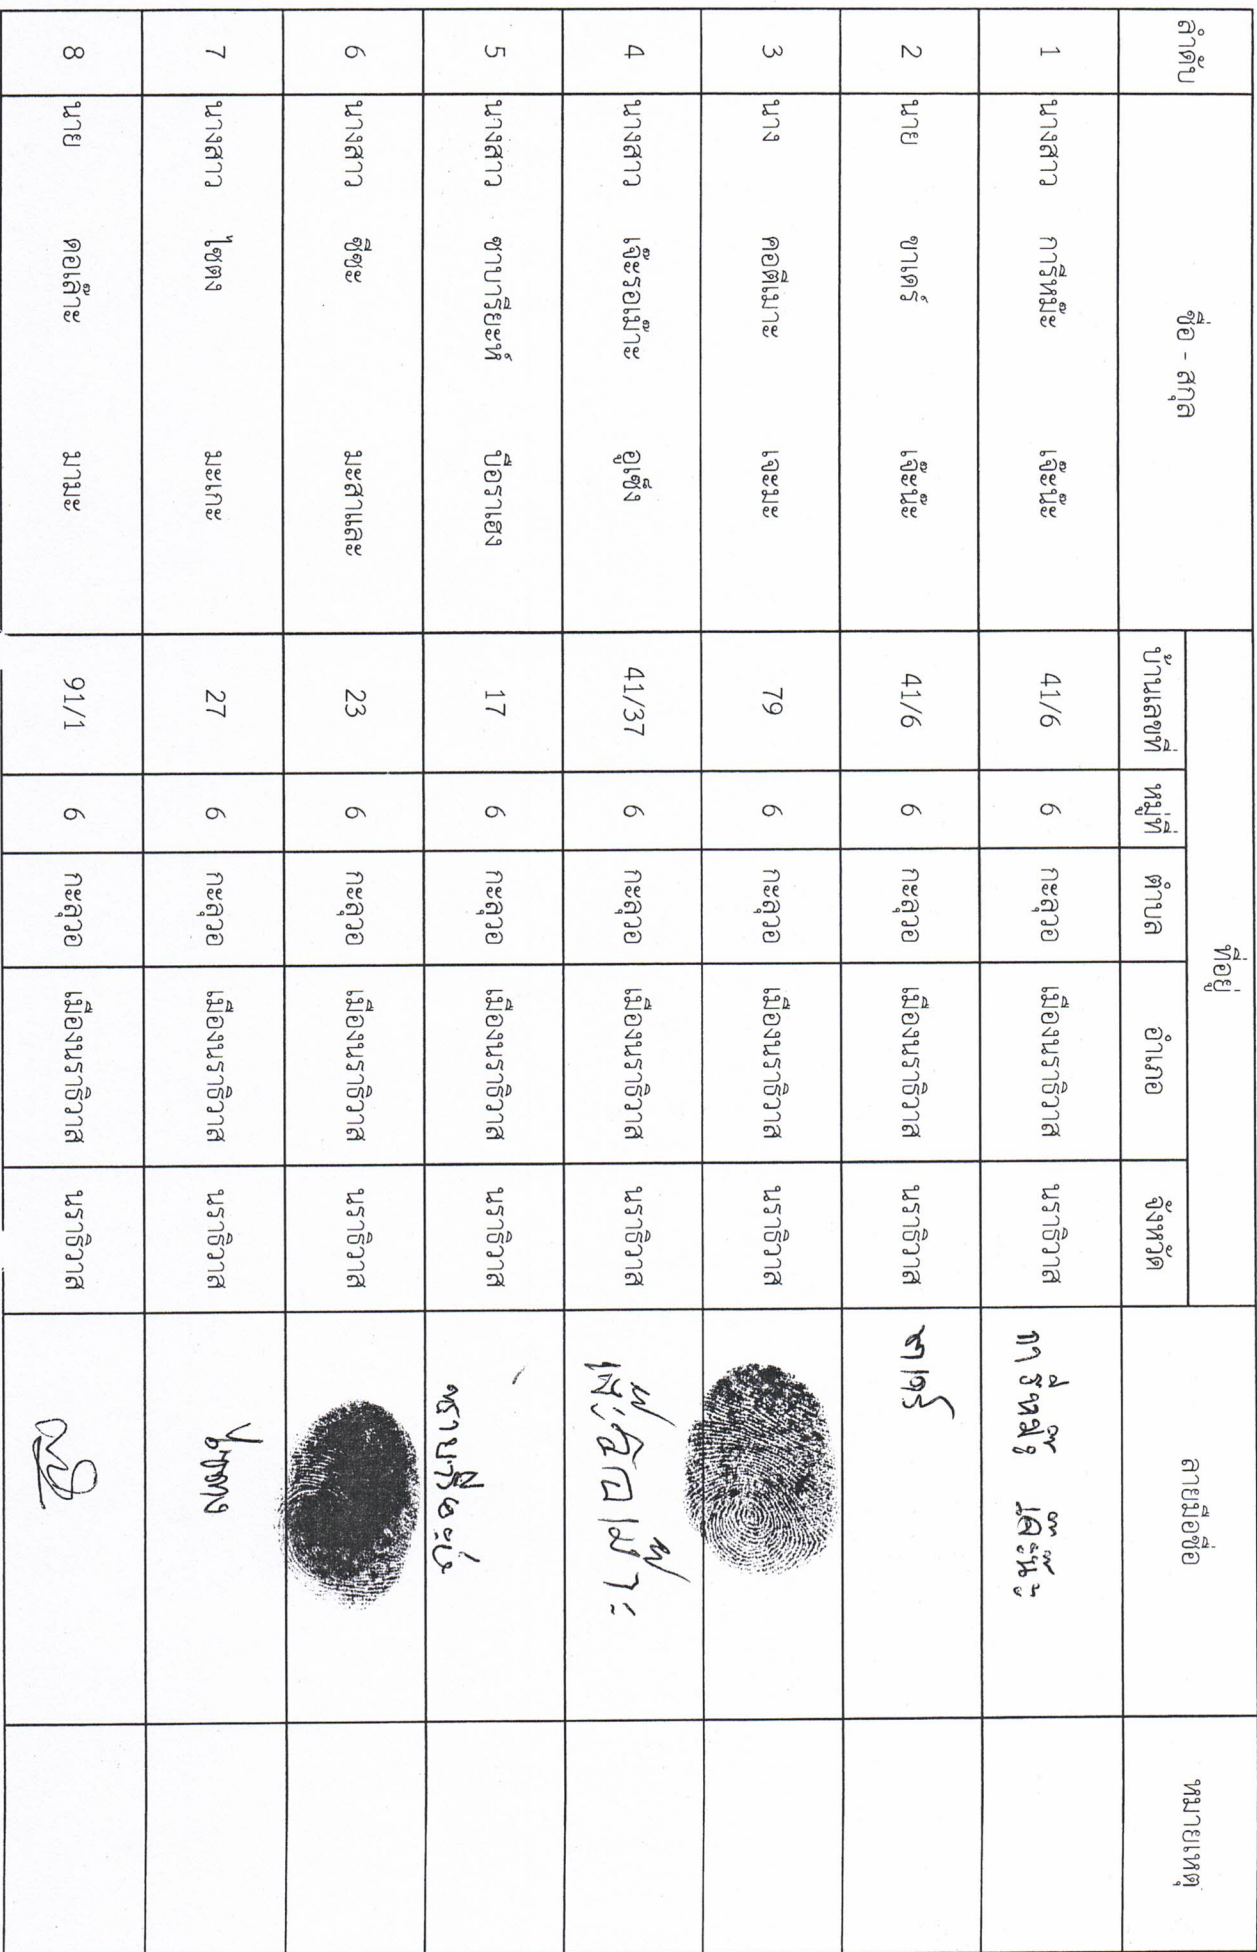 ลำดับ ชื่อ - สกุล ที่อยู่ ลายมือชื่อ หมายเหตุ
บ้านเลขที่ หมู่ที่ ตำบล อำเภอ จังหวัด
1 นางสาว การีหม๊ะ เจ๊ะน๊ะ 41/6 6 กะลุวอ เมืองนราธิวาส นราธิวาส การีหม๊ะ เจ๊ะน๊ะ
2 นาย ขาเดร์ เจ๊ะน๊ะ 41/6 6 กะลุวอ เมืองนราธิวาส นราธิวาส ขาเดร์
3 นาง คอตีเมาะ เจะมะ 79 6 กะลุวอ เมืองนราธิวาส นราธิวาส
4 นางสาว เจ๊ะรอเม๊าะ อูเซ็ง 41/37 6 กะลุวอ เมืองนราธิวาส นราธิวาส เจ๊ะรอเม๊าะ
5 นางสาว ซาบารียะห์ บือราเฮง 17 6 กะลุวอ เมืองนราธิวาส นราธิวาส
6 นางสาว ซีซะ มะสาและ 23 6 กะลุวอ เมืองนราธิวาส นราธิวาส
7 นางสาว ไซตง มะเกะ 27 6 กะลุวอ เมืองนราธิวาส นราธิวาส ไซตง
8 นาย ดอเล๊าะ มามะ 91/1 6 กะลุวอ เมืองนราธิวาส นราธิวาส